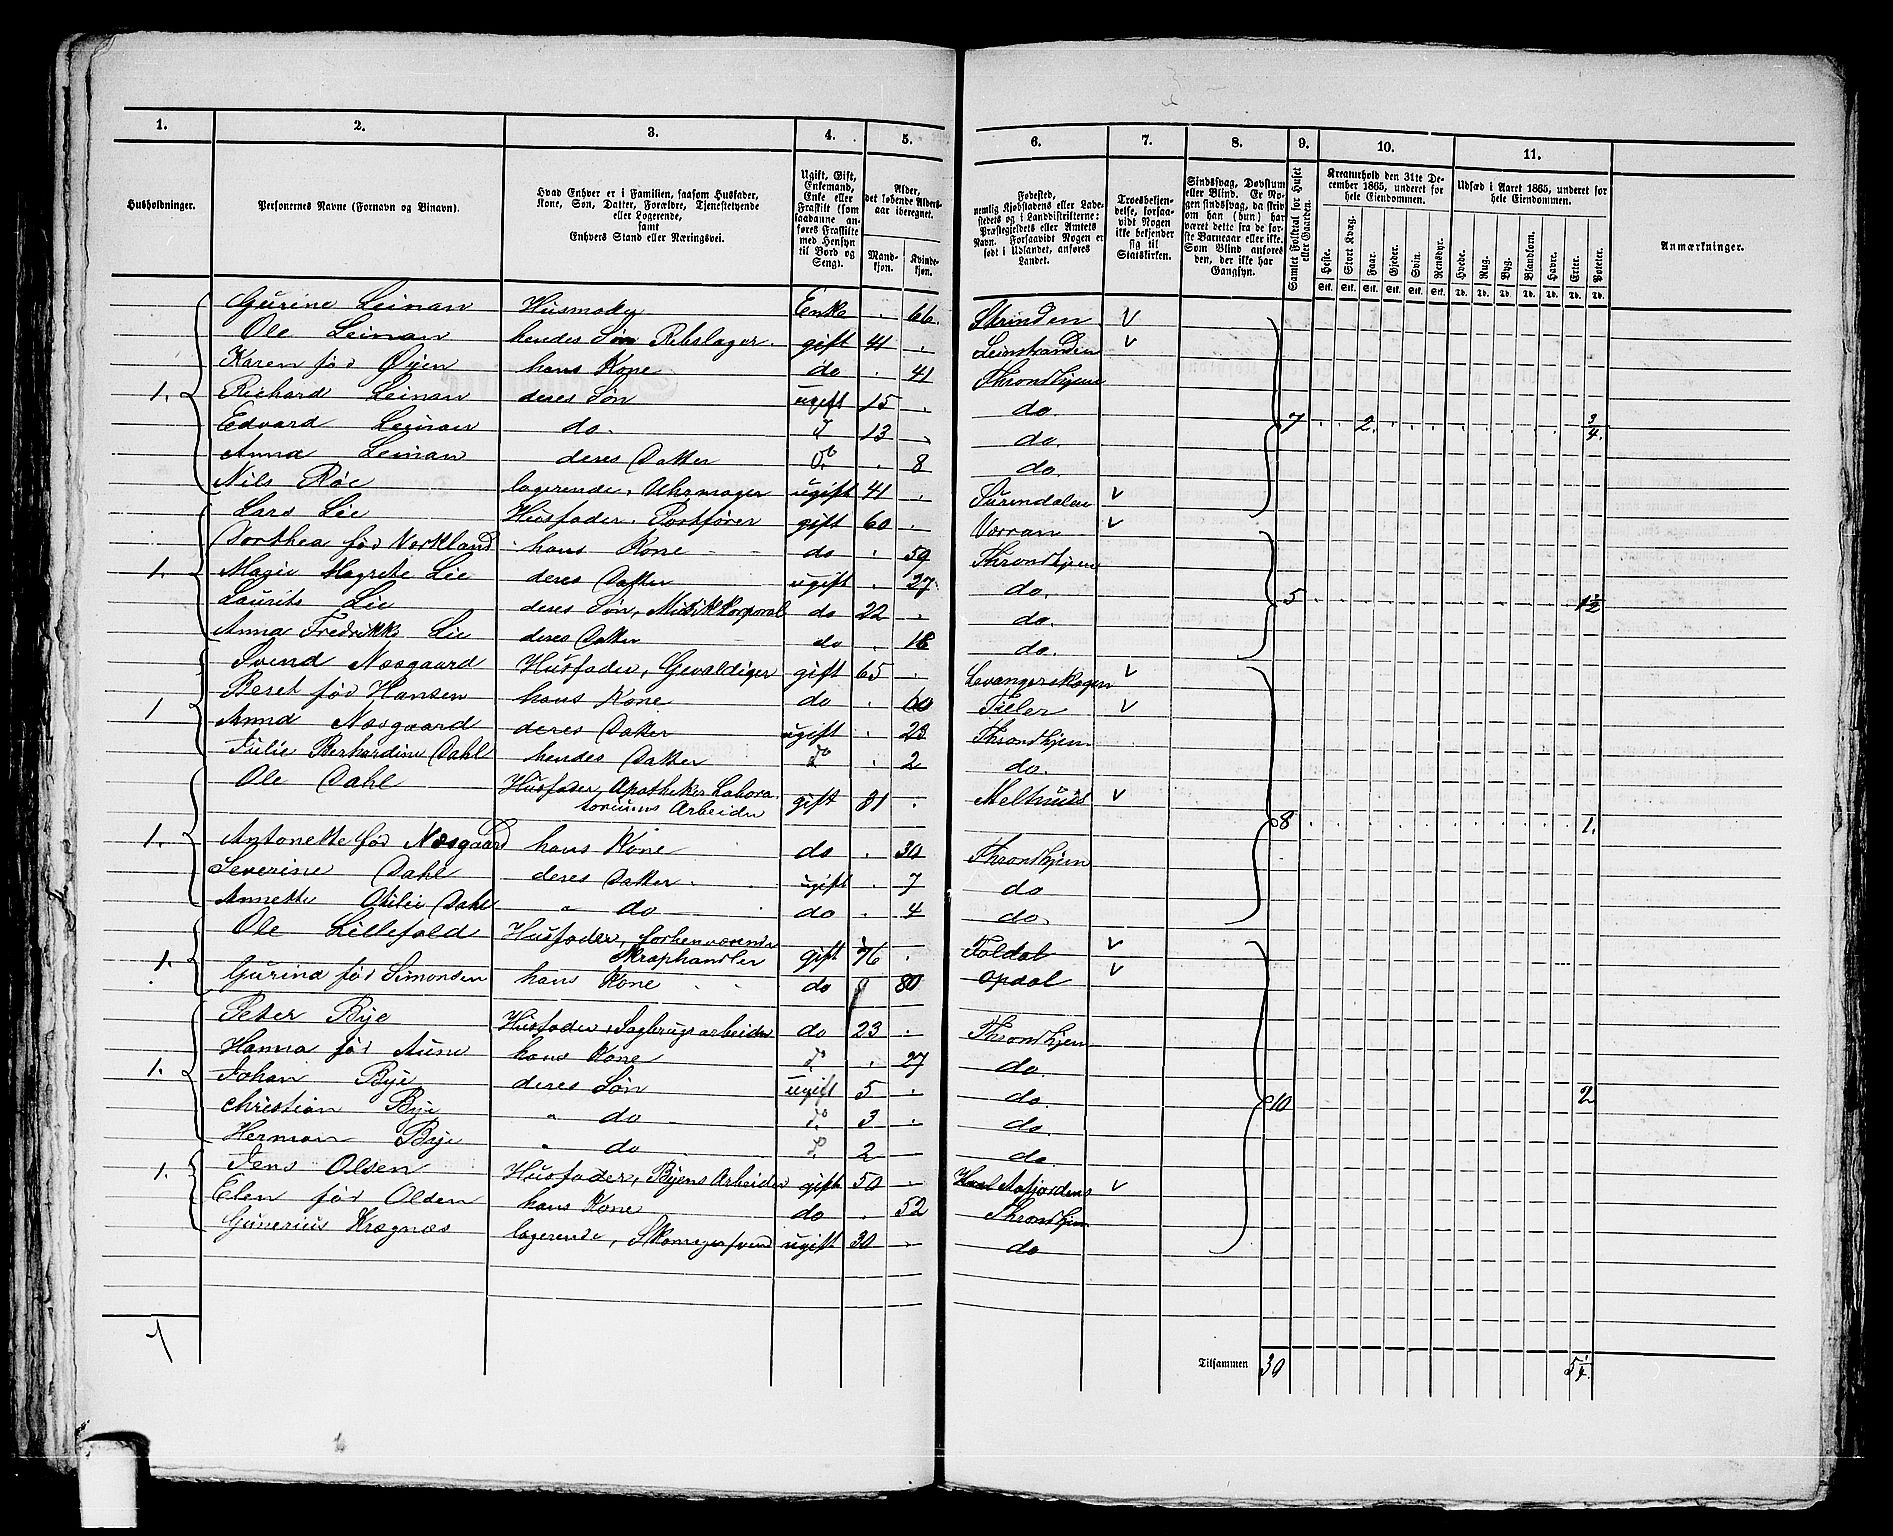 1. 2. 3. 4. 5. 6. 7. 8. 9. 10. 11.
Husholdninger.
Personernes Navne (Fornavn og Binavn).
Hvad Enhver er i Familien, saasom Husfader, Kone, Søn, Datter, Forældre, Tjenestetyende eller Logerende, samt Enhvers Stand eller Næringsvei.
Ugift, Gift, Enkemand, Enke eller Fraskilt (som saadanne anføres Fraskilte med Hensyn til Bord og Seng).
Alder, det løbende Alders-aar iberegnet.
Mandkjøn. Kvindekjøn.
Fødested, nemlig Kjøbstadens eller Ladestedets og i Landdistrikterne: Præstegjeldets eller Amtets Navn. Forsaavidt Nogen er født i Udlandet, anføres Landet.
Troesbekjendelse, forsaavidt Nogen ikke bekjender sig til Statskirken.
Sindssvag, Døvstum eller Blind. Er Nogen sindssvag, da skriv om han (hun) har været dette fra de første Barneaar eller ikke. Som Blind anføres den, der ikke har Gangsyn.
Samlet Folketal for Huset eller Gaarden.
Kreaturhold den 31te December 1865, underet for hele Eiendommen.
Heste. Stort Kvæg. Faar. Gjeder. Svin. Rensdyr.
Udsæd i Aaret 1865, underet for hele Eiendommen.
Hvede. Rug. Byg. Blandkorn. Havre. Erter. Poteter.
Stk. Stk. Stk. Stk. Stk. Stk. Td. Td. Td. Td. Td. Td. Td.
Anmærkninger.
Gurine Leinan Husmoder Enke . 66. Strinden v
Ole Leinan hendes Søn Rebslager. gift 41 . Leinstranden v
Karen fød Øyen hans Kone do . 41 Throndhjem
1. Richard Leinan deres Søn ugift 15 . do.
Edvard Leinan do. do 13 . do. 7 . . 2. . . . . . . . . . 3/4.
Anna Leinan deres Datter do . 8 do.
Nils Röe logerende, Uhrmager ugift 41 . Surendalen v
Lars Lie Husfader, Postfører gift 60 . Vorran v
Dorthea fød Norkland hans Kone do . 59 Throndhjem
1. Magie Magrete Lie deres Datter ugift . 27. do.
Laurits Lie deres Søn, Musikkorporal do 22 . do. 5 1 1/2
Anna Fredrikke Lie deres Datter do . 18 do.
Svend Næsgaard Husfader, Gevaldiger gift 65 . Levangerskogen v
Beret fød Hansen hans Kone do . 60 Tiller v
1 Anna Næsgaard deres Datter ugift . 23 Throndhjem
Julie Berhardine Dahl hendes Datter do . 2 do.
Ole Dahl Husfader, Apotheker Labora-
toriums Arbeider gift 31 . Melhuus v
8 1.
1. Antonette fød Næsgaard hans Kone do . 34 Throndhjem
Severine Dahl deres Datter ugift . 7 do
Annette Otilie Dahl " do do . 4 do.
Ole Lillefold Husfader, forhenværende
Skraphandler gift 76 . Foldal v
1. Gurina fød Simonsen hans Kone do 80 Opdal v
Peter Bye Husfader, Sagbrugsarbeider do 23 . Throndhjem
Hanna fød Aune hans Kone do . 27 do.
1. Johan Bye deres Søn ugift 5 . do.
Christian Bye " do do 3 . do. 10 2
Herman Bye " do do 2 do.
1. Jens Olsen Husfader, Byens Arbeider gift 50 . Aafjordens v
Elen fød Olsen hans Kone do . 52 Throndhjem
Gunerius Kragnæs logerende, Skomagersvend ugift 30 . do
7 Tilsammen 30 5 1/4.